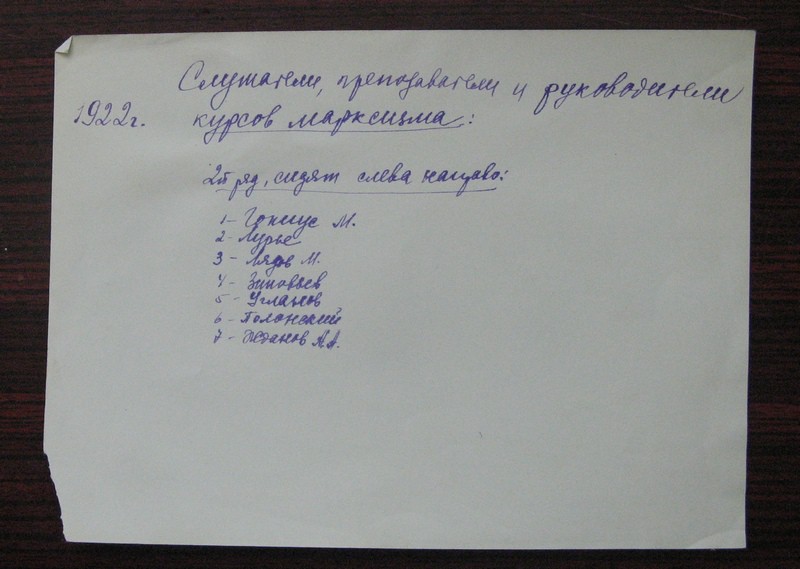 Слушатели, преподаватели и руководители
1922г. курсов марксизма:
2й ряд, сидят слева направо:
1 - М.
2 - Лурье
3 - Лядов М.
4 - Зиновьев
5 - Угланов
6 - Полонский
7 - Жданов А.А.